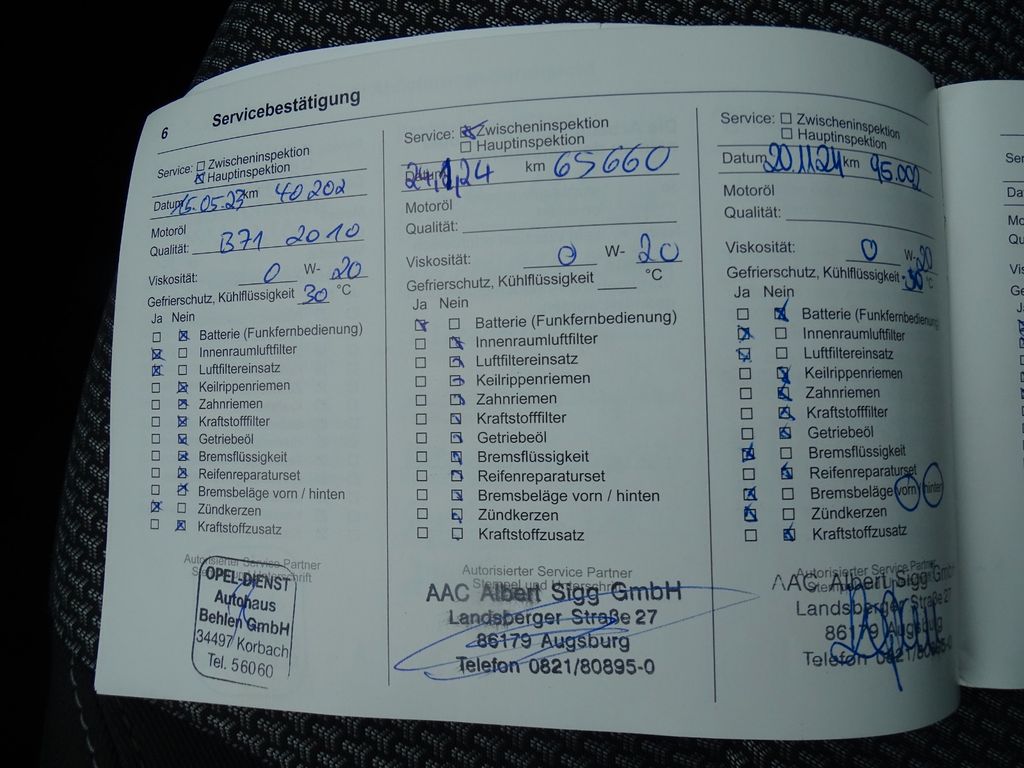 6 Servicebestätigung
Service: Zwischeninspektion
Hauptinspektion
Datum 15.05.23 km 40202
Motoröl
Qualität: B71 2010
Viskosität: 0 W- 20
Gefrierschutz, Kühlflüssigkeit 30 °C
Ja Nein
Batterie (Funkfernbedienung)
Innenraumluftfilter
Luftfiltereinsatz
Keilrippenriemen
Zahnriemen
Kraftstofffilter
Getriebeöl
Bremsflüssigkeit
Reifenreparaturset
Bremsbeläge vorn / hinten
Zündkerzen
Kraftstoffzusatz
Autorisierter Service Partner
OPEL-DIENST
Autohaus
Behlen GmbH
34497 Korbach
Tel. 56060
Service: Zwischeninspektion
Hauptinspektion
24,1,24 km 65660
Motoröl
Qualität:
Viskosität: 0 W- 20
Gefrierschutz, Kühlflüssigkeit °C
Ja Nein
Batterie (Funkfernbedienung)
Innenraumluftfilter
Luftfiltereinsatz
Keilrippenriemen
Zahnriemen
Kraftstofffilter
Getriebeöl
Bremsflüssigkeit
Reifenreparaturset
Bremsbeläge vorn / hinten
Zündkerzen
Kraftstoffzusatz
Autorisierter Service Partner
Stempel und Unterschrift
AAC Albert Sigg GmbH
Landsberger Straße 27
86179 Augsburg
Telefon 0821/80895-0
Service: Zwischeninspektion
Hauptinspektion
Datum 20.11.24 km 95.002
Motoröl
Qualität:
Viskosität: 0 W- 20
Gefrierschutz, Kühlflüssigkeit -30 °C
Ja Nein
Batterie (Funkfernbedienung)
Innenraumluftfilter
Luftfiltereinsatz
Keilrippenriemen
Zahnriemen
Kraftstofffilter
Getriebeöl
Bremsflüssigkeit
Reifenreparaturset
Bremsbeläge vorn hinten
Zündkerzen
Kraftstoffzusatz
Autorisierter Service Partner
AAC Albert Sigg GmbH
Landsberger Straße 27
86179 Augsburg
Telefon 0821/80895-0